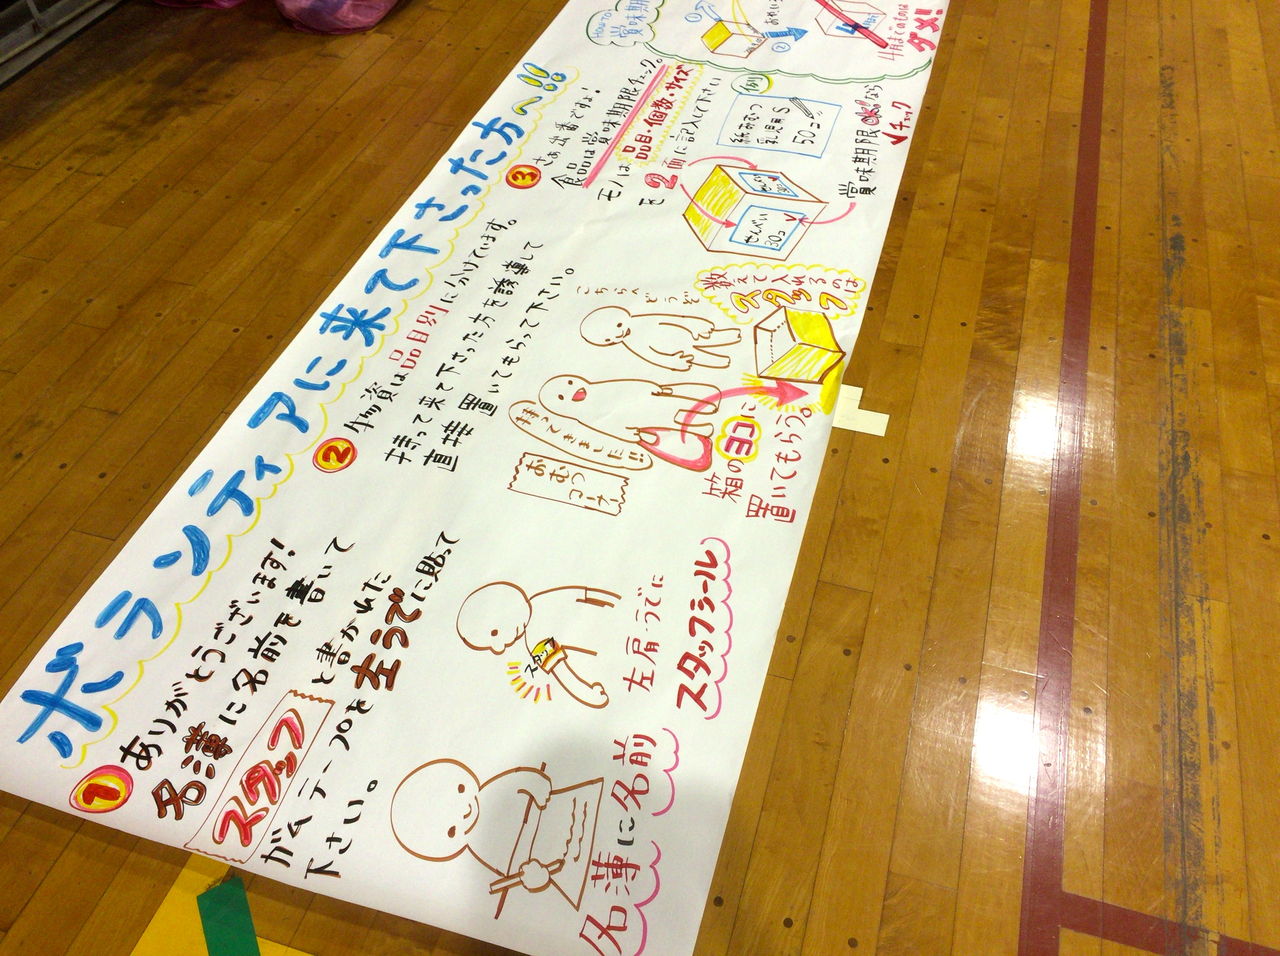 ボランティアに来て下さった方へ!!
1
ありがとうございます!
名簿に名前を書いて
スタッフと書かれた
ガムテープを左うでに貼って
下さい。
名簿に名前
スタッフ
左肩・うでに
スタッフシール
2
物資は品目別に分けています。
持って来て下さった方を誘導して
直接置いてもらって下さい。
こちらへどうぞ
持ってきました!!
おむつ
コーナー
数えて入れるのは
スタッフ
箱のヨコに
置いてもらう。
3
さぁ出番ですよ!
食品は賞味期限チェック。
モノは品目・個数・サイズ
を2面に記入して下さい
例
紙おむつ
乳児用S
50コ
せんべい
30コ
賞味期限OK!なら
√チェック
HOW TO
賞味期
①
②
4月までのものは
ダメ!!